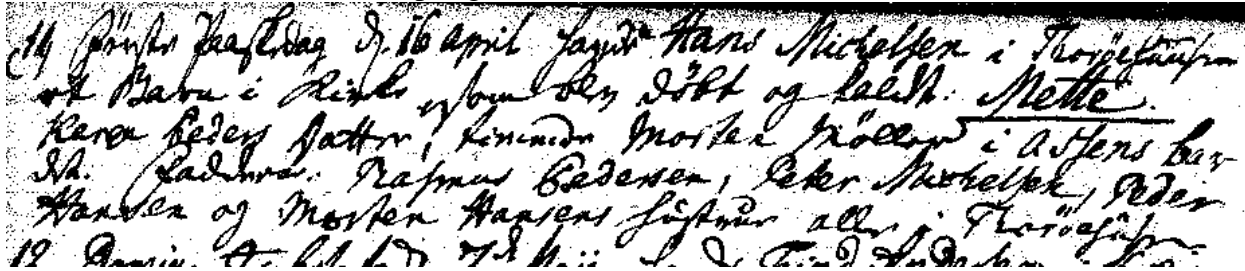 14 Første Paaskedag d. 16 April hafde Hans Michelsen i Thorøehuusene
et Barn i Kirke som blev døbt og kaldt: Mette.
Karen Peders Datter, tienende Morten Møller i Assens bar
det. Faddere: Rasmus Pedersen, Peter Michelsen, Peder
Hansen og Morten Hansens Hustrue alle i Thorøehuse